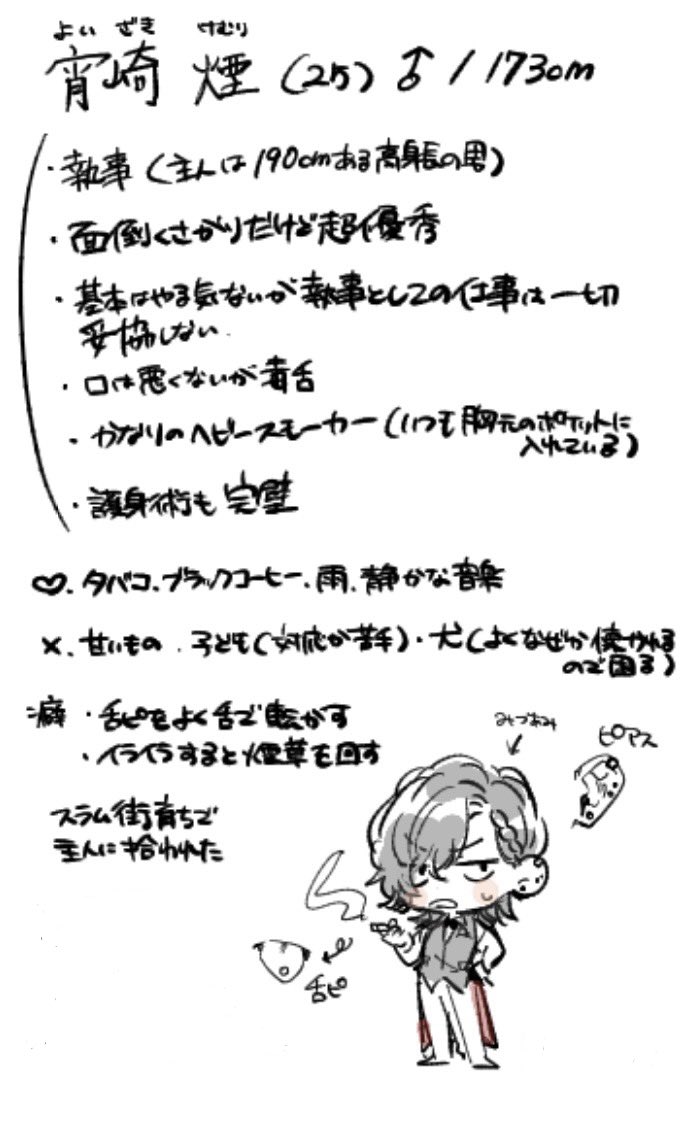 よいざき けむり
宵崎 煙 (25) ♂ / 173cm
・執事 (主人は190cmある高身長の男)
・面倒くさがりだけど超優秀
・基本はやる気ないが執事としての仕事は一切
妥協しない.
・口は悪くないが毒舌
・かなりのヘビースモーカー (いつも胸元のポケットに
入れている)
・護身術も完璧
♡. タバコ. ブラックコーヒー. 雨. 静かな音楽
×. 甘いもの . 子ども (対応が苦手)・犬 (よくなぜか懐かれる
ので困る)
癖 ・舌ピをよく舌で転がす
・イライラすると煙草を回す
みつあみ
ピアス
スラム街育ちで
主人に拾われた
舌ピ